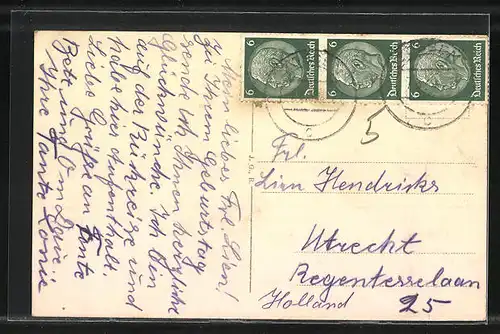 Mein liebes Frl. Lien!
Zu Ihrem Geburtstag
sende ich Ihnen herzliche
Glückwünsche. Ich bin
auf der Rückreise und
habe hier Aufenthalt.
Liebe Grüße an Tante
Bets und Om
Ihre Tante Lonie
6 Deutsches Reich 6
6 Deutsches Reich 6
6 Deutsches Reich 6
5
Frl.
Lien Hendricks
Utrecht
Regentesselaan
Holland 25